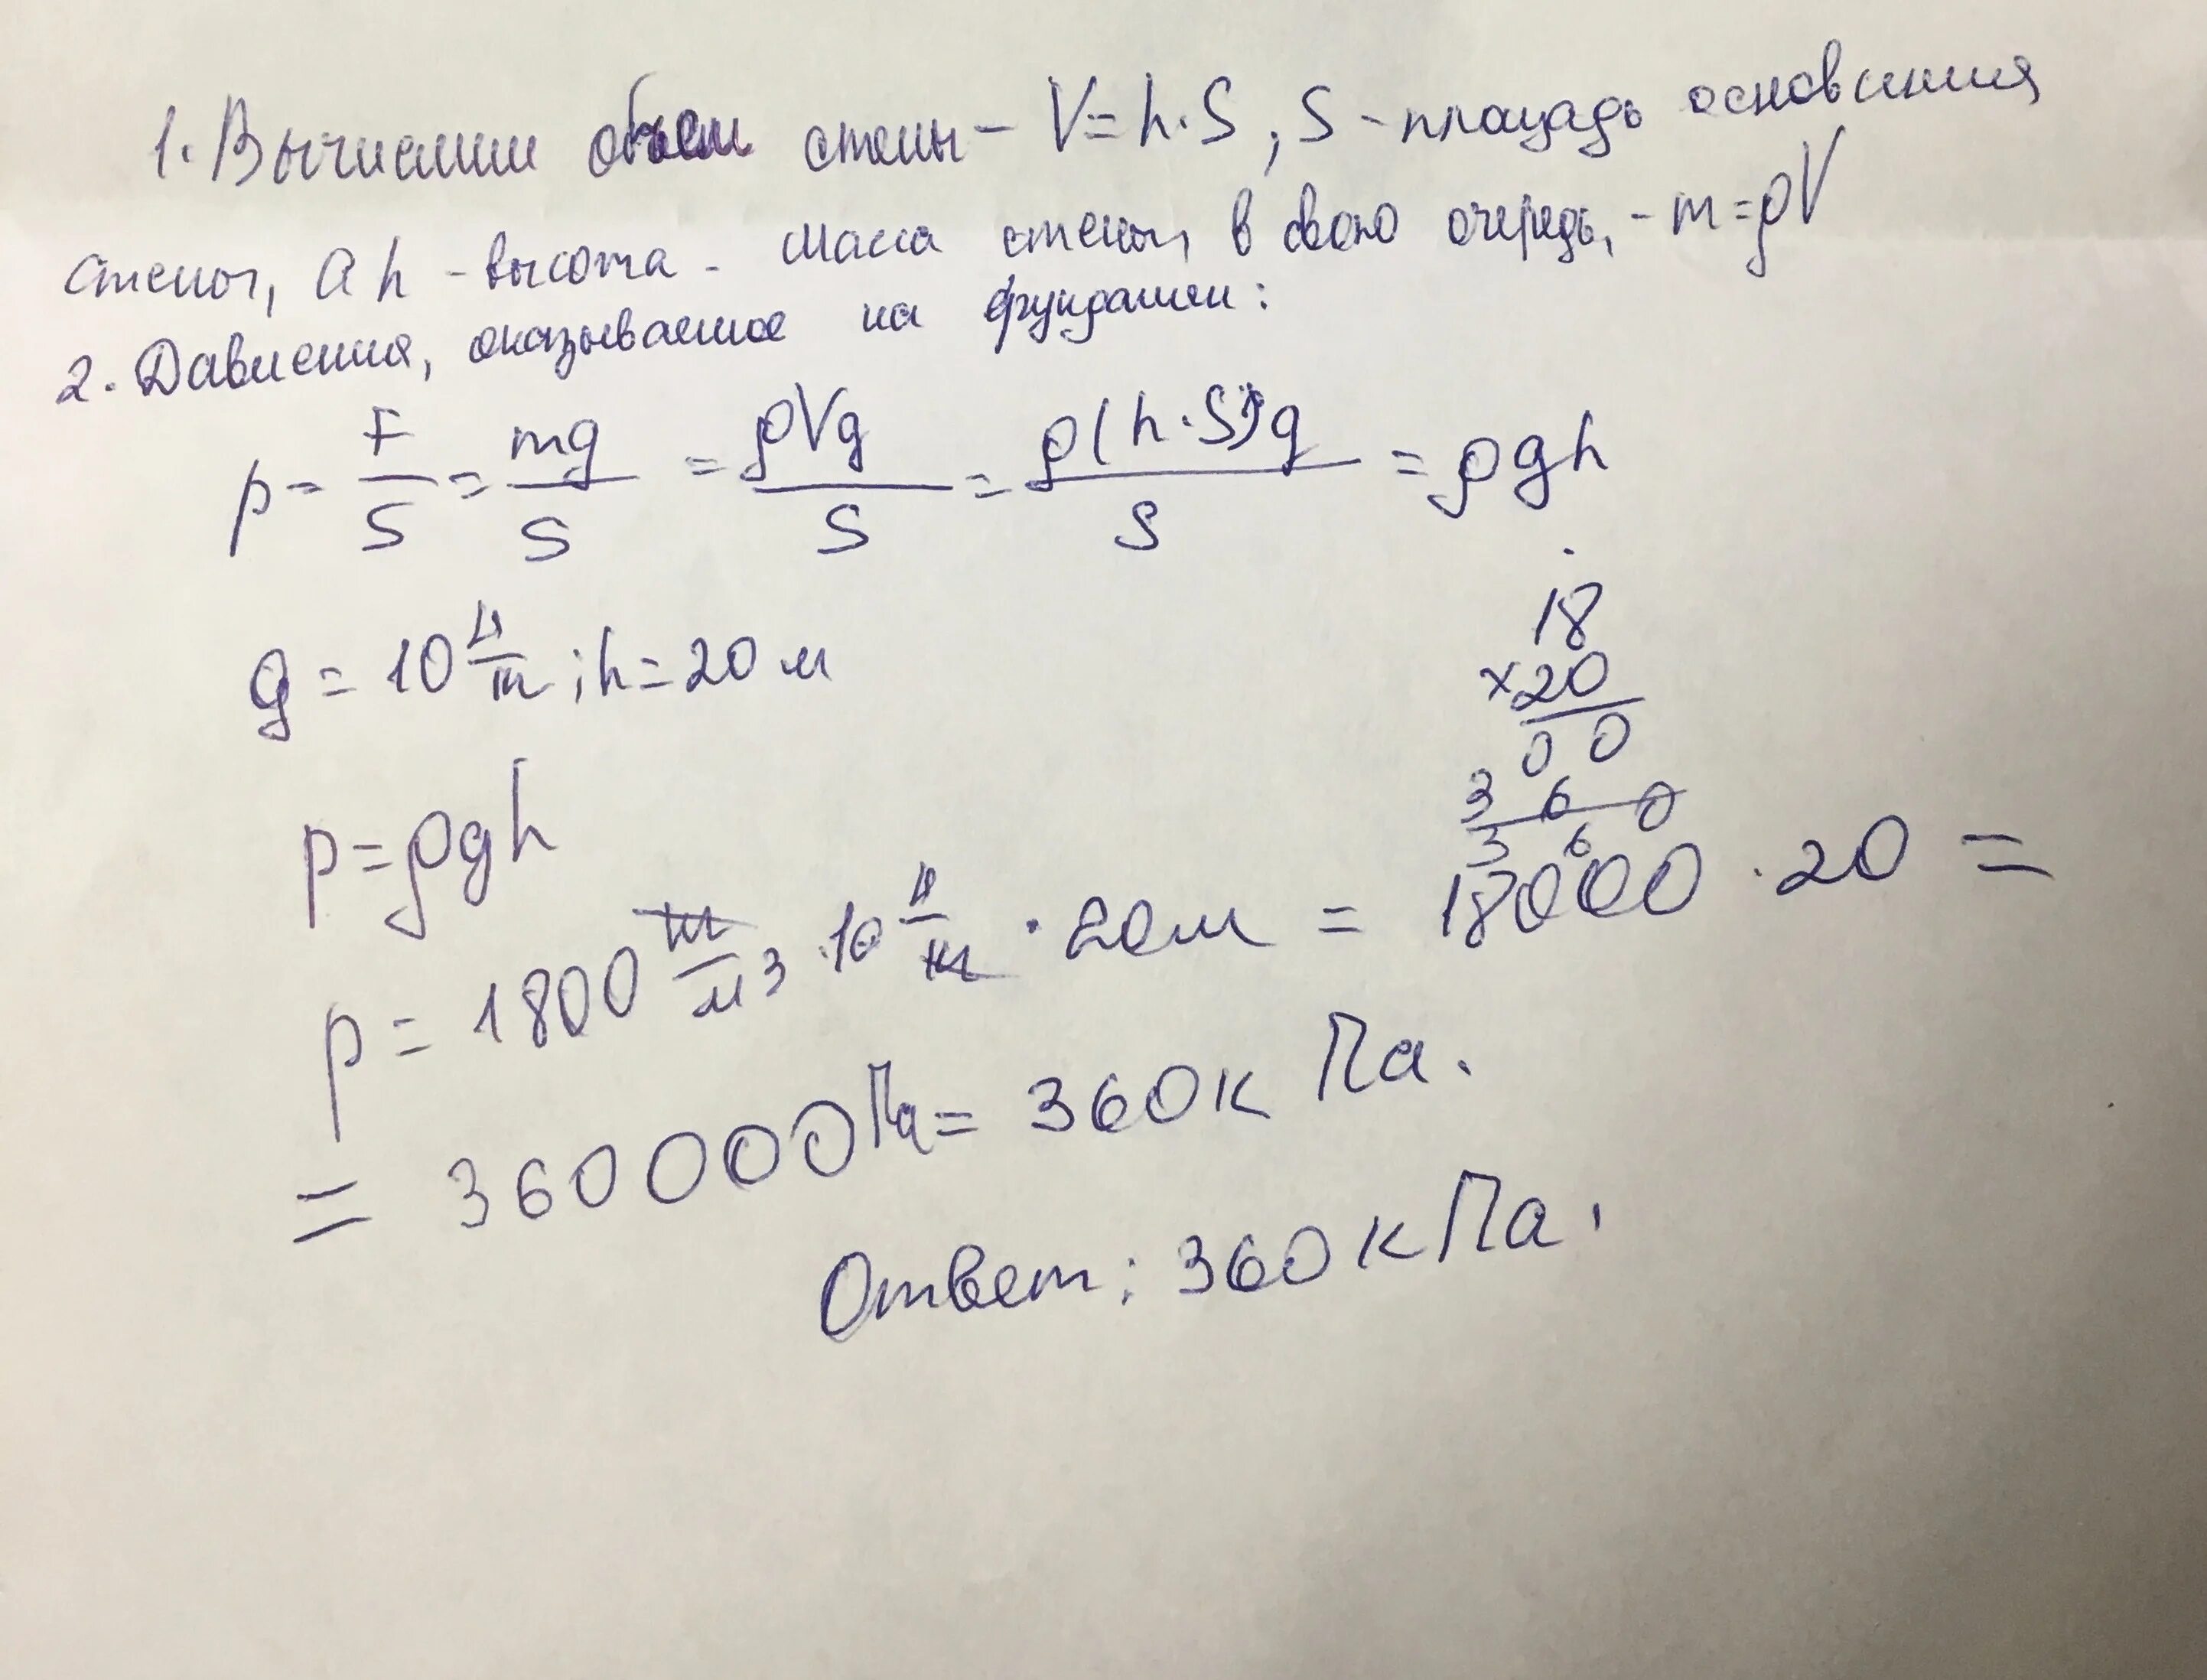 1. Вычислим объем стены – V=h·S, S – площадь основания
стены, а h – высота. Масса стены, в свою очередь, – m=ρV
2. Давления, оказываемое на фундамен:
p = F/S = mg/S = ρVg/S = ρ(h·S)g/S = ρgh
g = 10 Н/кг; h = 20 м
18
×20
00
360
360
p = ρgh
p = 1800 кг/м3 · 10 Н/кг · 20м = 18000 · 20 =
= 360000Па = 360к Па.
Ответ: 360 кПа.